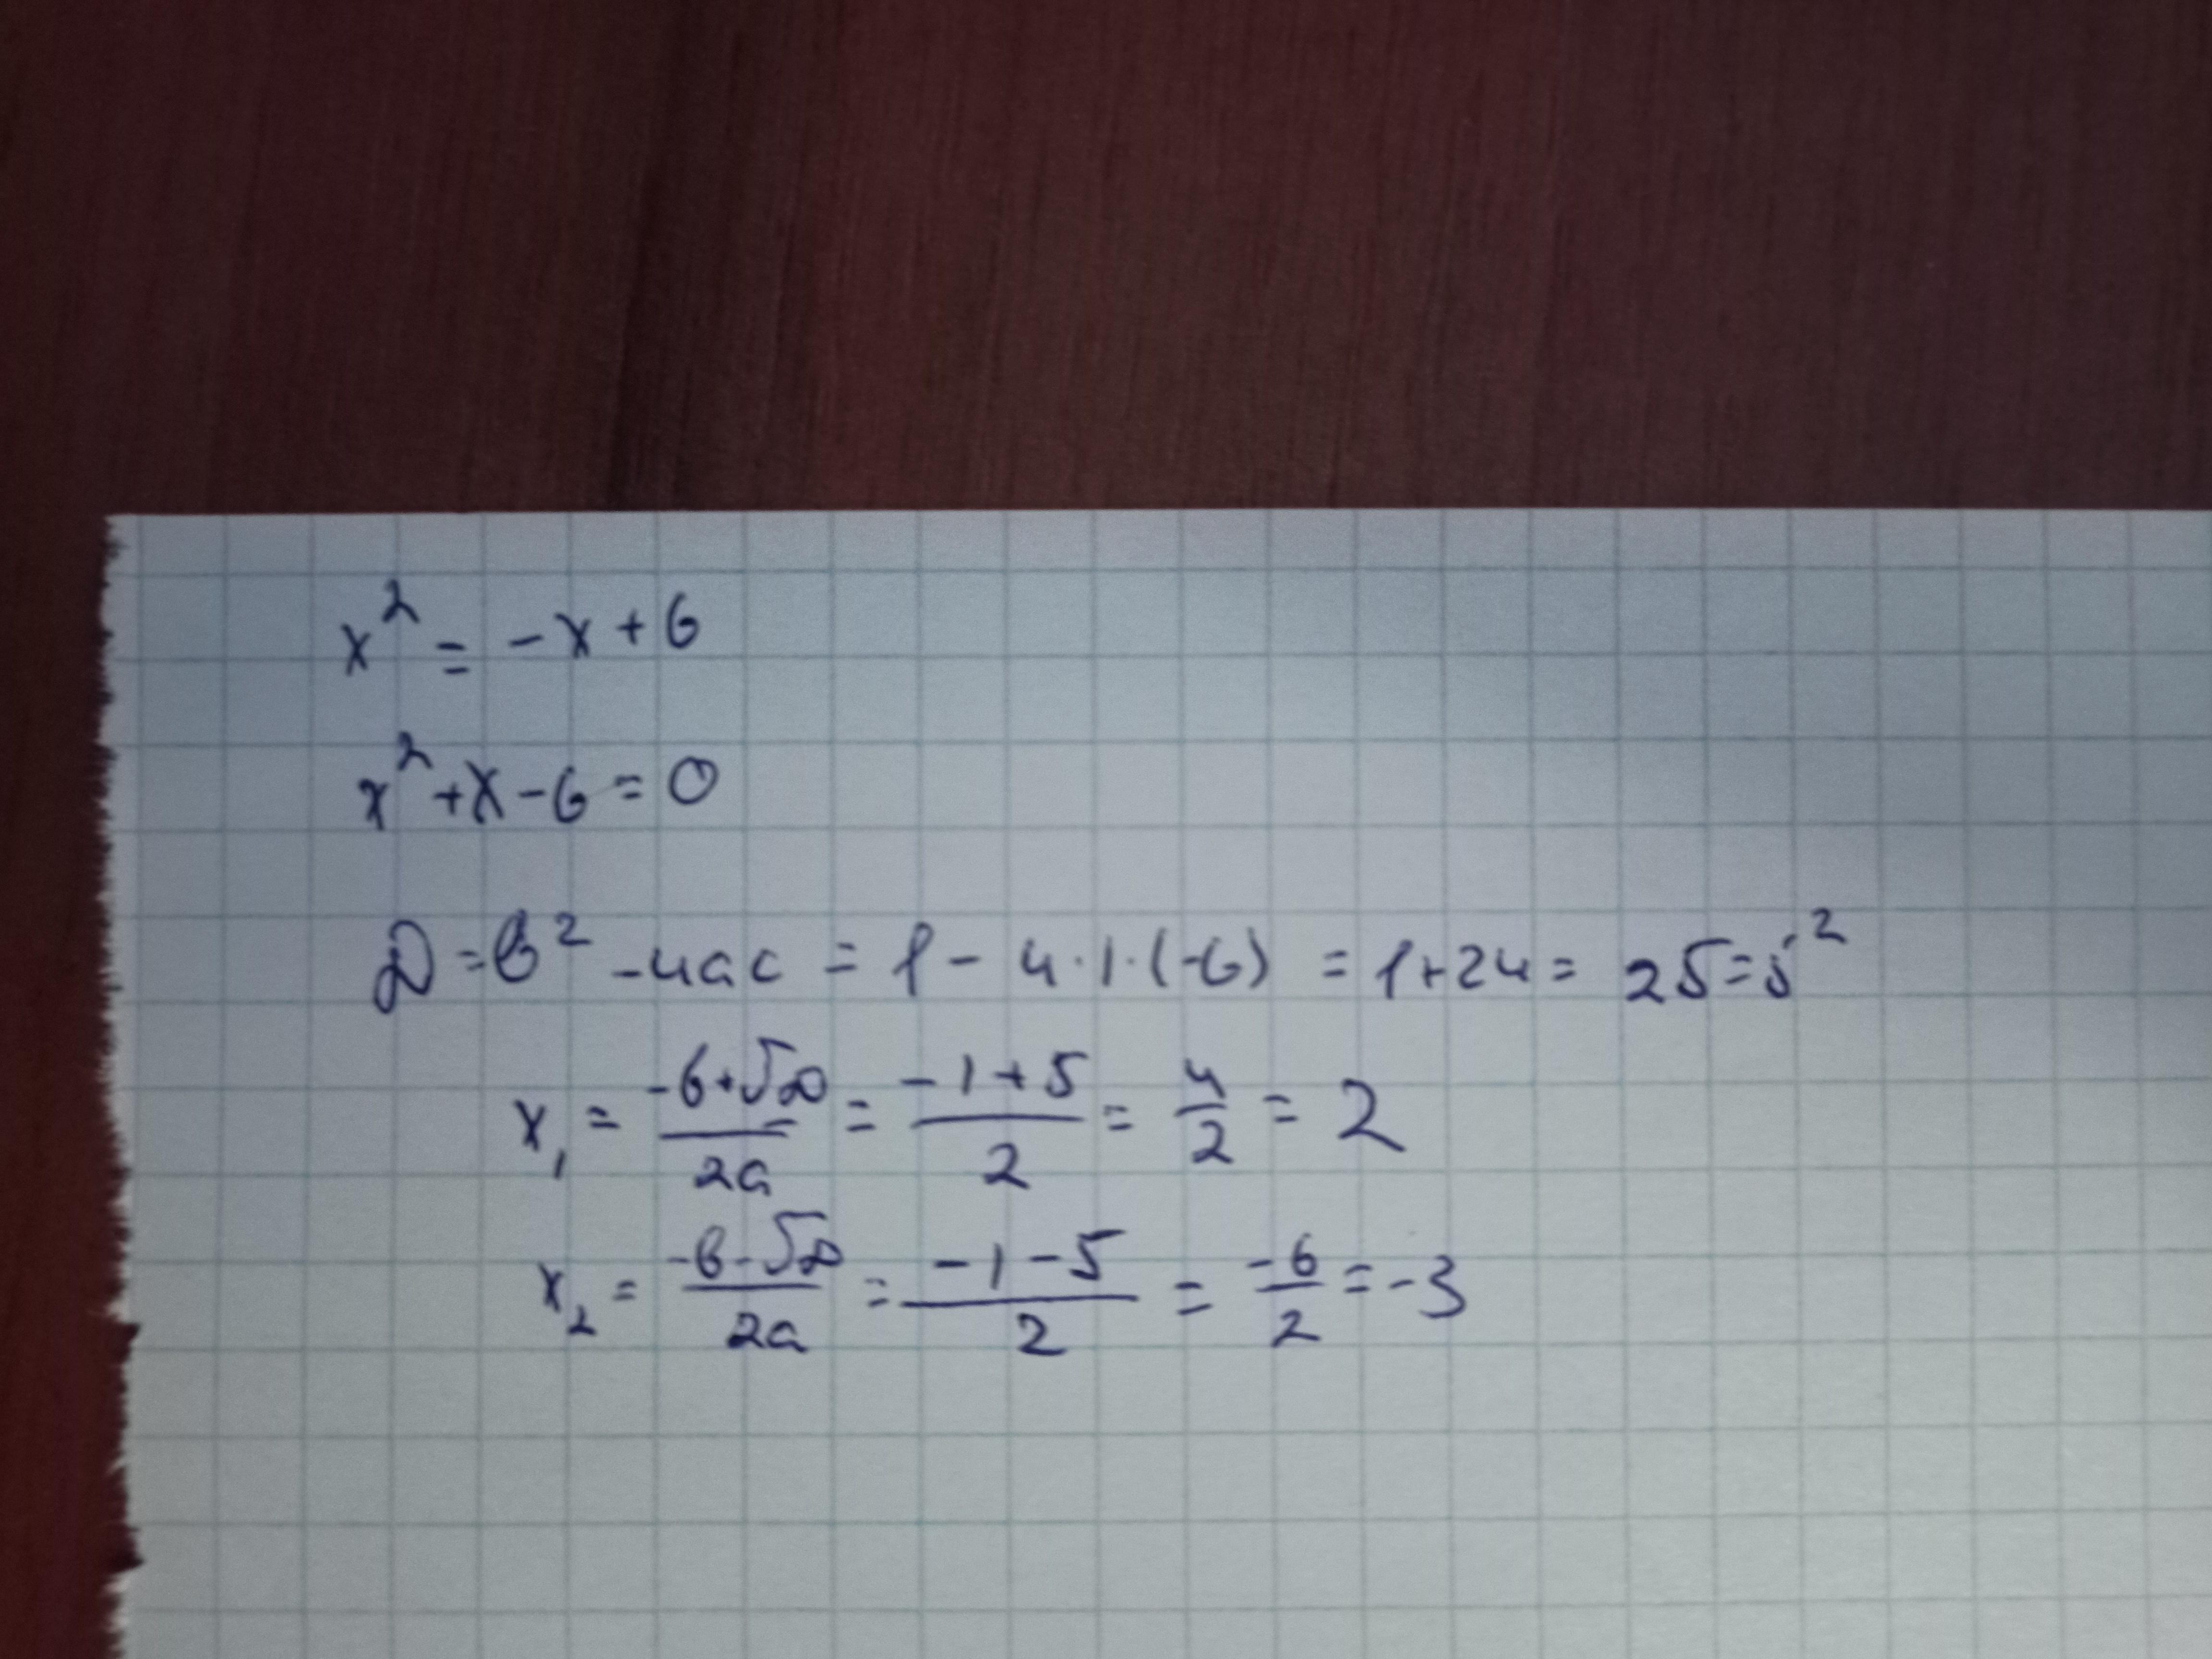 x² = -x + 6
x² + x - 6 = 0
D = b² - 4ac = 1 - 4·1·(-6) = 1 + 24 = 25 = 5²
x₁ = (-b + √D)/(2a) = (-1 + 5)/2 = 4/2 = 2
x₂ = (-b - √D)/(2a) = (-1 - 5)/2 = -6/2 = -3